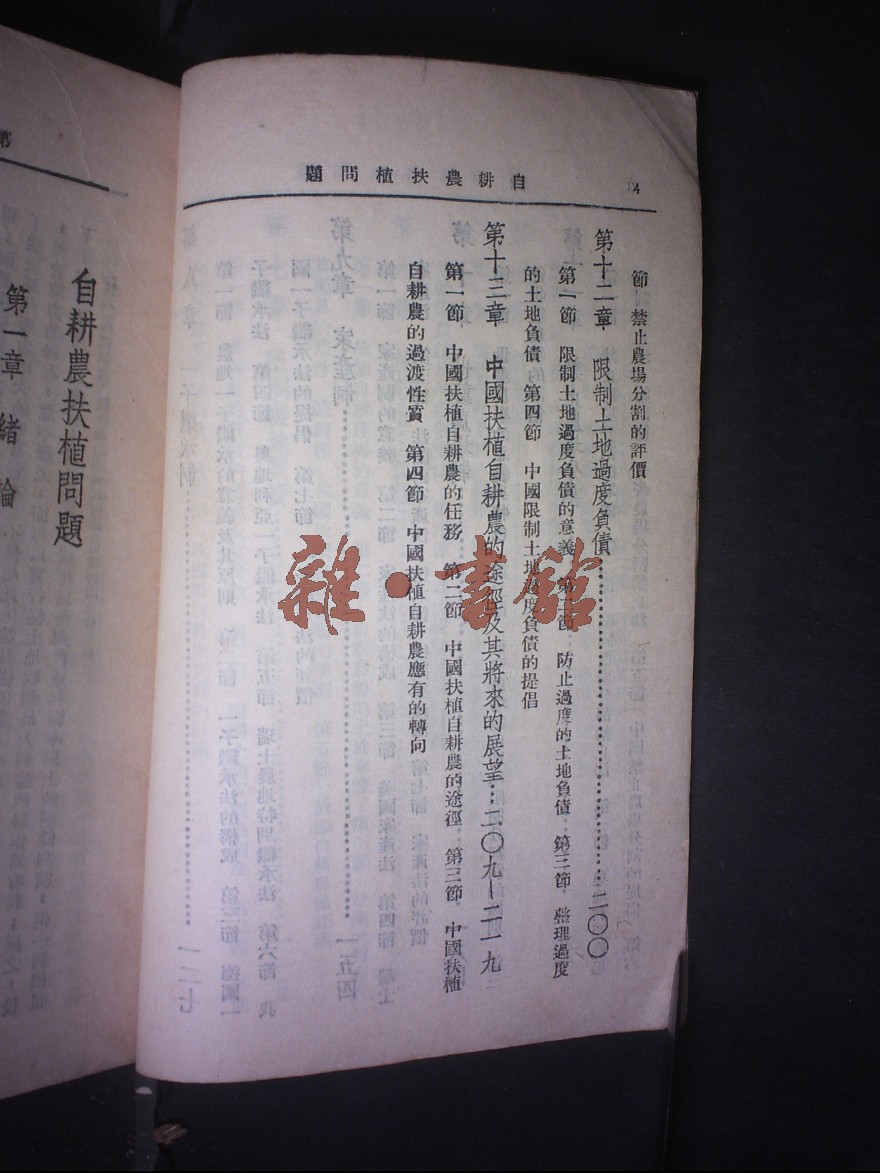 自耕農扶植問題
4
節 禁止農場分割的評價
第十二章 限制土地過度負債……二〇〇
第一節 限制土地過度負債的意義 第二節 防止過度的土地負債 第三節 整理過度
的土地負債 第四節 中國限制土地過度負債的提倡
第十三章 中國扶植自耕農的途徑及其將來的展望…二〇九—二一九
第一節 中國扶植自耕農的任務 第二節 中國扶植自耕農的途徑 第三節 中國扶植
自耕農的過渡性質 第四節 中國扶植自耕農應有的轉向
第
自耕農扶植問題
第一章 緒論
雜·書館